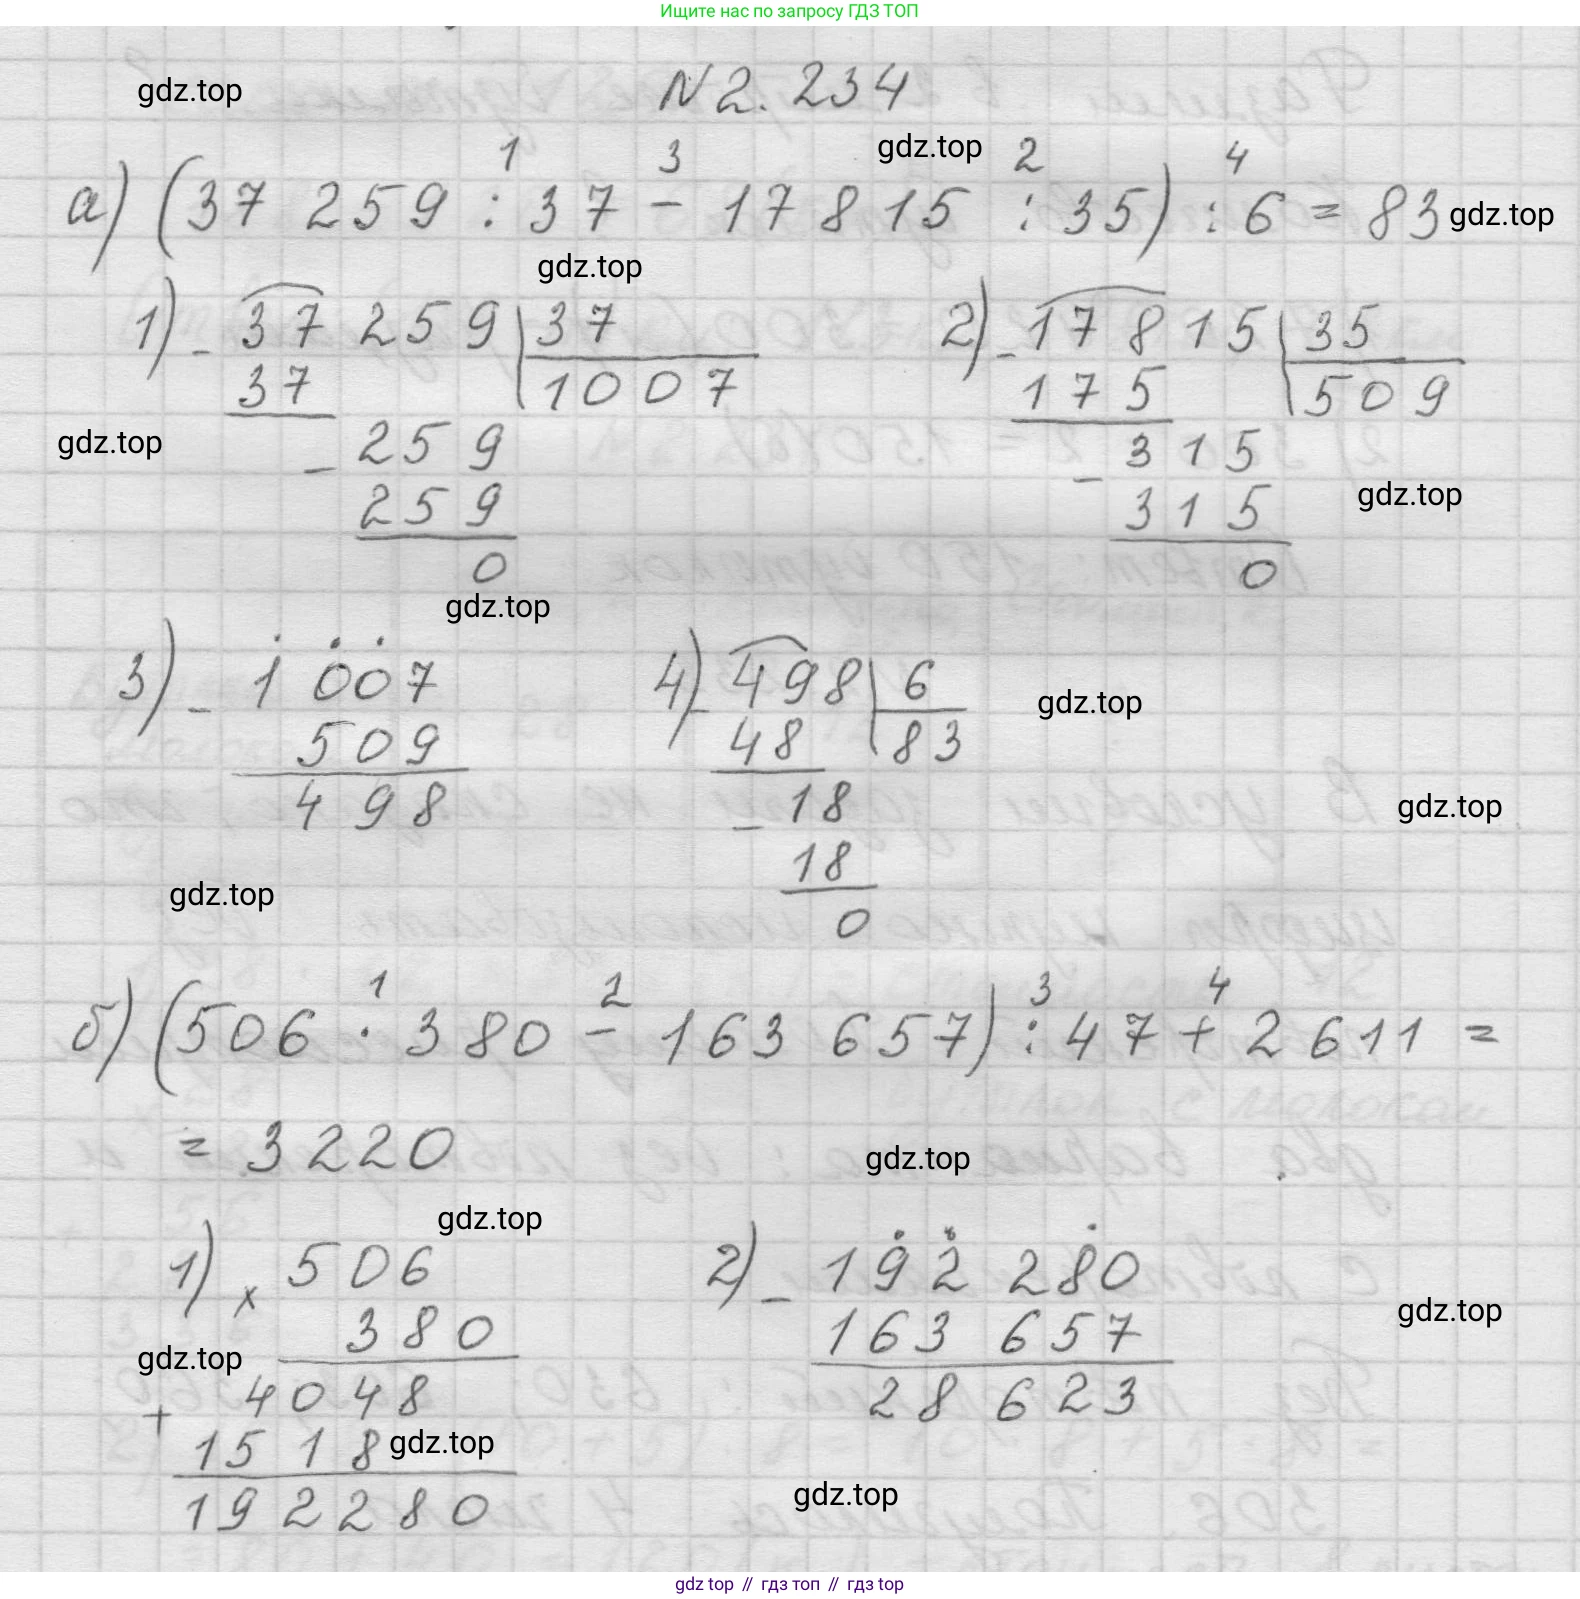 Ищите нас по запросу ГДЗ ТОП
gdz.top
N 2. 234
gdz.top
1 3 2 4
а) (37 259 : 37 - 17 815 : 35) : 6 = 83
gdz.top
gdz.top
1) - 37 259 | 37 2) - 17815 | 35
37 1007 175 509
gdz.top
- 259 - 315
259 315
gdz.top
0 0
gdz.top
3) - 1 007 4) - 498 | 6
gdz.top
509 48 83
498 - 18
gdz.top
18
gdz.top
0
1 2 3 4
б) (506 · 380 - 163 657) : 47 + 2611 =
= 3220
gdz.top
gdz.top
1) x 506 2) - 192 280
gdz.top
380 163 657
gdz.top
4048 28 623
+ 1518
gdz.top
gdz.top
192280
gdz top // гдз топ // гдз top